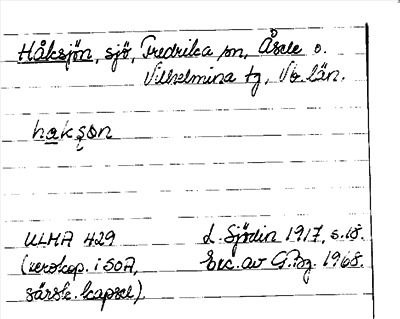 Håksjön, sjö, Fredrika sn, Åsele o.
Vilhelmina tg, Vb. län.
haksøn
ULMA 429 L. Sjödin 1917, s. 18.
(xerokop. i SOA, Exc. av 1968.
särsk. kapsel).